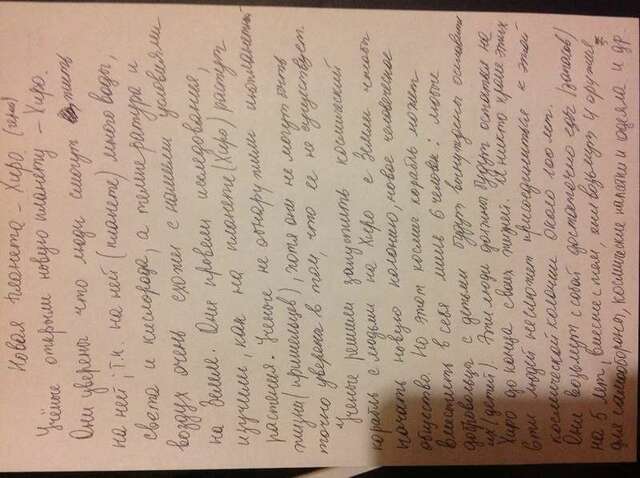 Новая планета - Хиро. (герой)
Учёные открыли новую планету - Хиро.
Они уверены что люди смогут жить
на ней, т.к. на ней (планете) много воды,
света и кислорода, а температура и
воздух очень схожи с нашими условиями
на Земле. Они провели исследования,
изучили, как на планете (Хиро) растут
растения. Ученые не обнаружили инопланетн
жизни (пришельцев), хотя они не могут быть
точно уверена в том, что ее не существует.
Ученые решили запустить космический
корабль с людьми на Хиро с Земли чтобы
начать новую колонию, новое человеческое
общество. Но этот космич корабль может
вместить в себя лише 6 человек: любые
добровольцы с детьми будут вынуждены оставить
их (детей). Эти люди должны будут остаться на
Хиро до конца своих жизней. И никто кроме этих
6ти людей не сможет присоединиться к этой
космической колонии около 100 лет.
Они возьмут с собой достаточно еды (запасов)
на 5 лет, вместе с тем, они возьмут и оружие
для самообороны, космические палатки и одежда и др